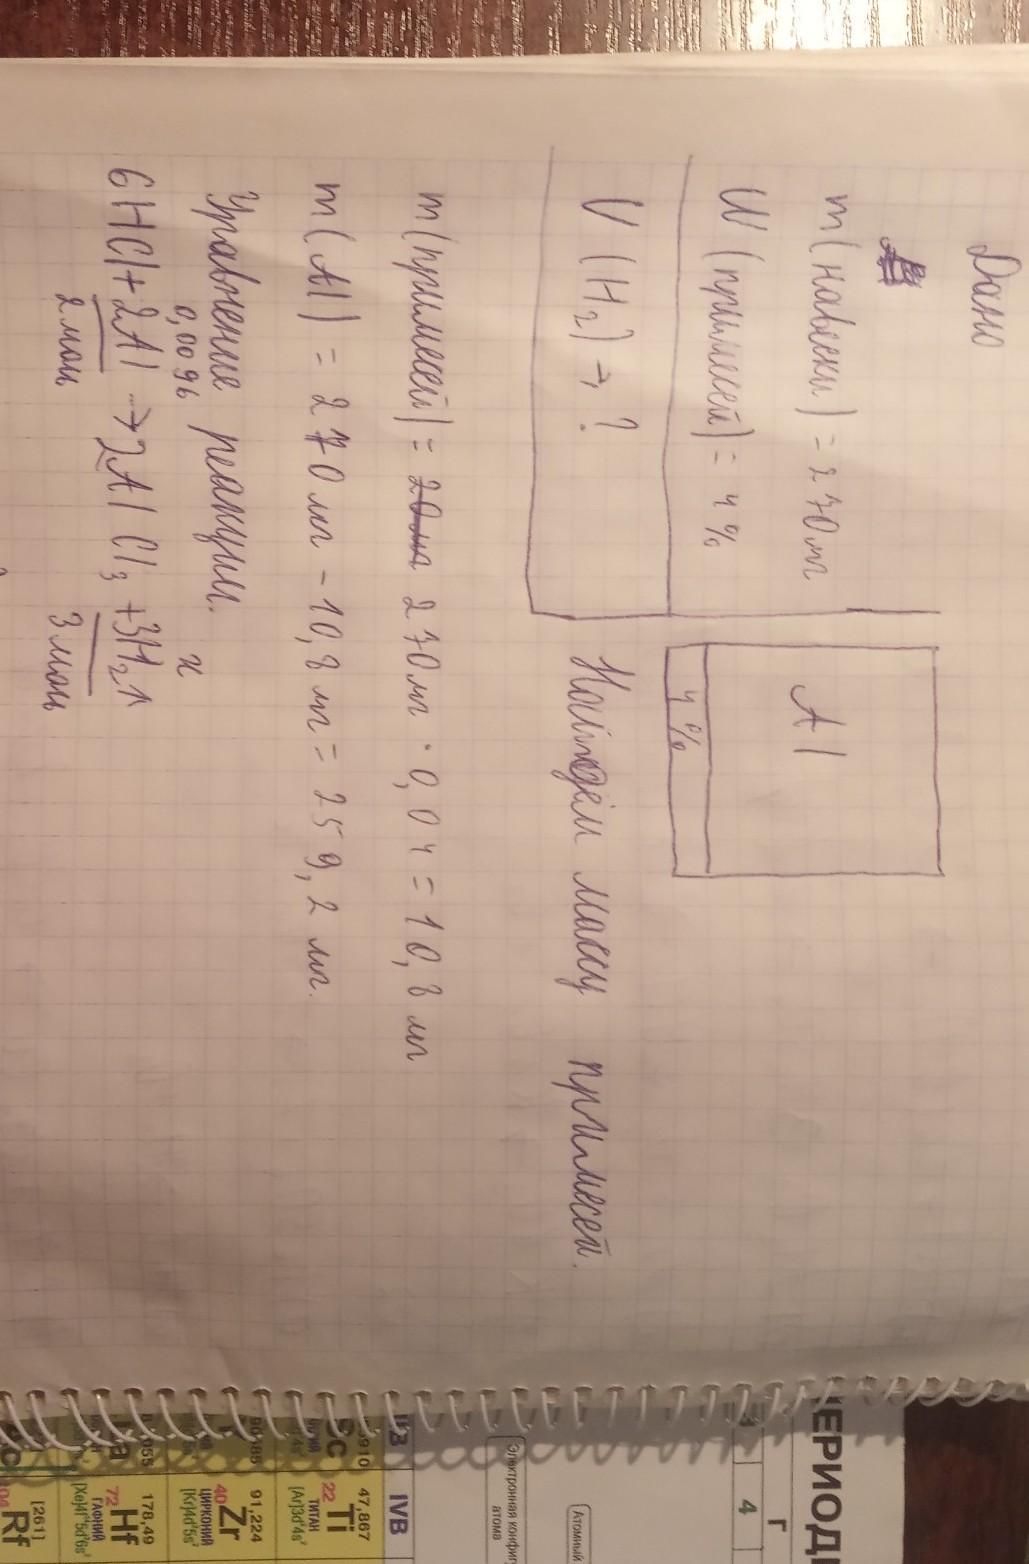 Дано
m(навески) = 270 мг
W (примесей) = 4%
V (H₂) → ?
Al
4%
Найдём массу примесей.
m(примесей) = 270 мг · 0,04 = 10,8 мг
m(Al) = 270 мг - 10,8 мг = 259,2 мг.
Уравнение реакции.
0,0096 x
6HCl + 2Al → 2AlCl₃ + 3H₂↑
2 моль 3 моль
ЕРИОД
Г
3 4
Атомный
Электронная конфиг
атома
IVB
47,867
22 Ti
ТИТАН
[Ar]3d²4s²
91,224
40 Zr
ЦИРКОНИЙ
[Kr]4d²5s²
178,49
72 Hf
ГАФНИЙ
[261]
104 Rf